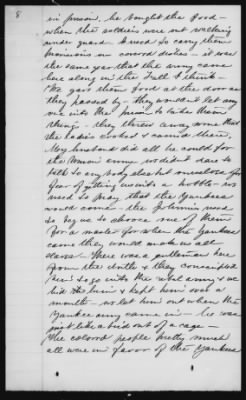 8
in prison, he bought the food -
when the soldiers were out walking
under guard I used to carry them
provisions in covered dishes - it was
the same year that the army came
here along in the Fall I think -
We gave them food at the door as
they passed by - they wouldn't let any
one into the prison to take them
things - they took away some that
the ladies cooked & carried there.
My husband did all he could for
the Union army we didn't dare to
talk to any body else but ourselves for
fear of getting us into a hobble - we
used to pray that the Yankees
would come - the Johnnies used
to beg us to choose one of them
for a master for when the Yankees
came they would make us all
slaves - There was a gentleman here
from the North & they conscripted
him to go into the rebel army & we
hid him & kept him over a
month - we let him out when the
Yankee army came in - he was
just like a bird out of a cage -
The colored people pretty much
all were in favor of the Yankees